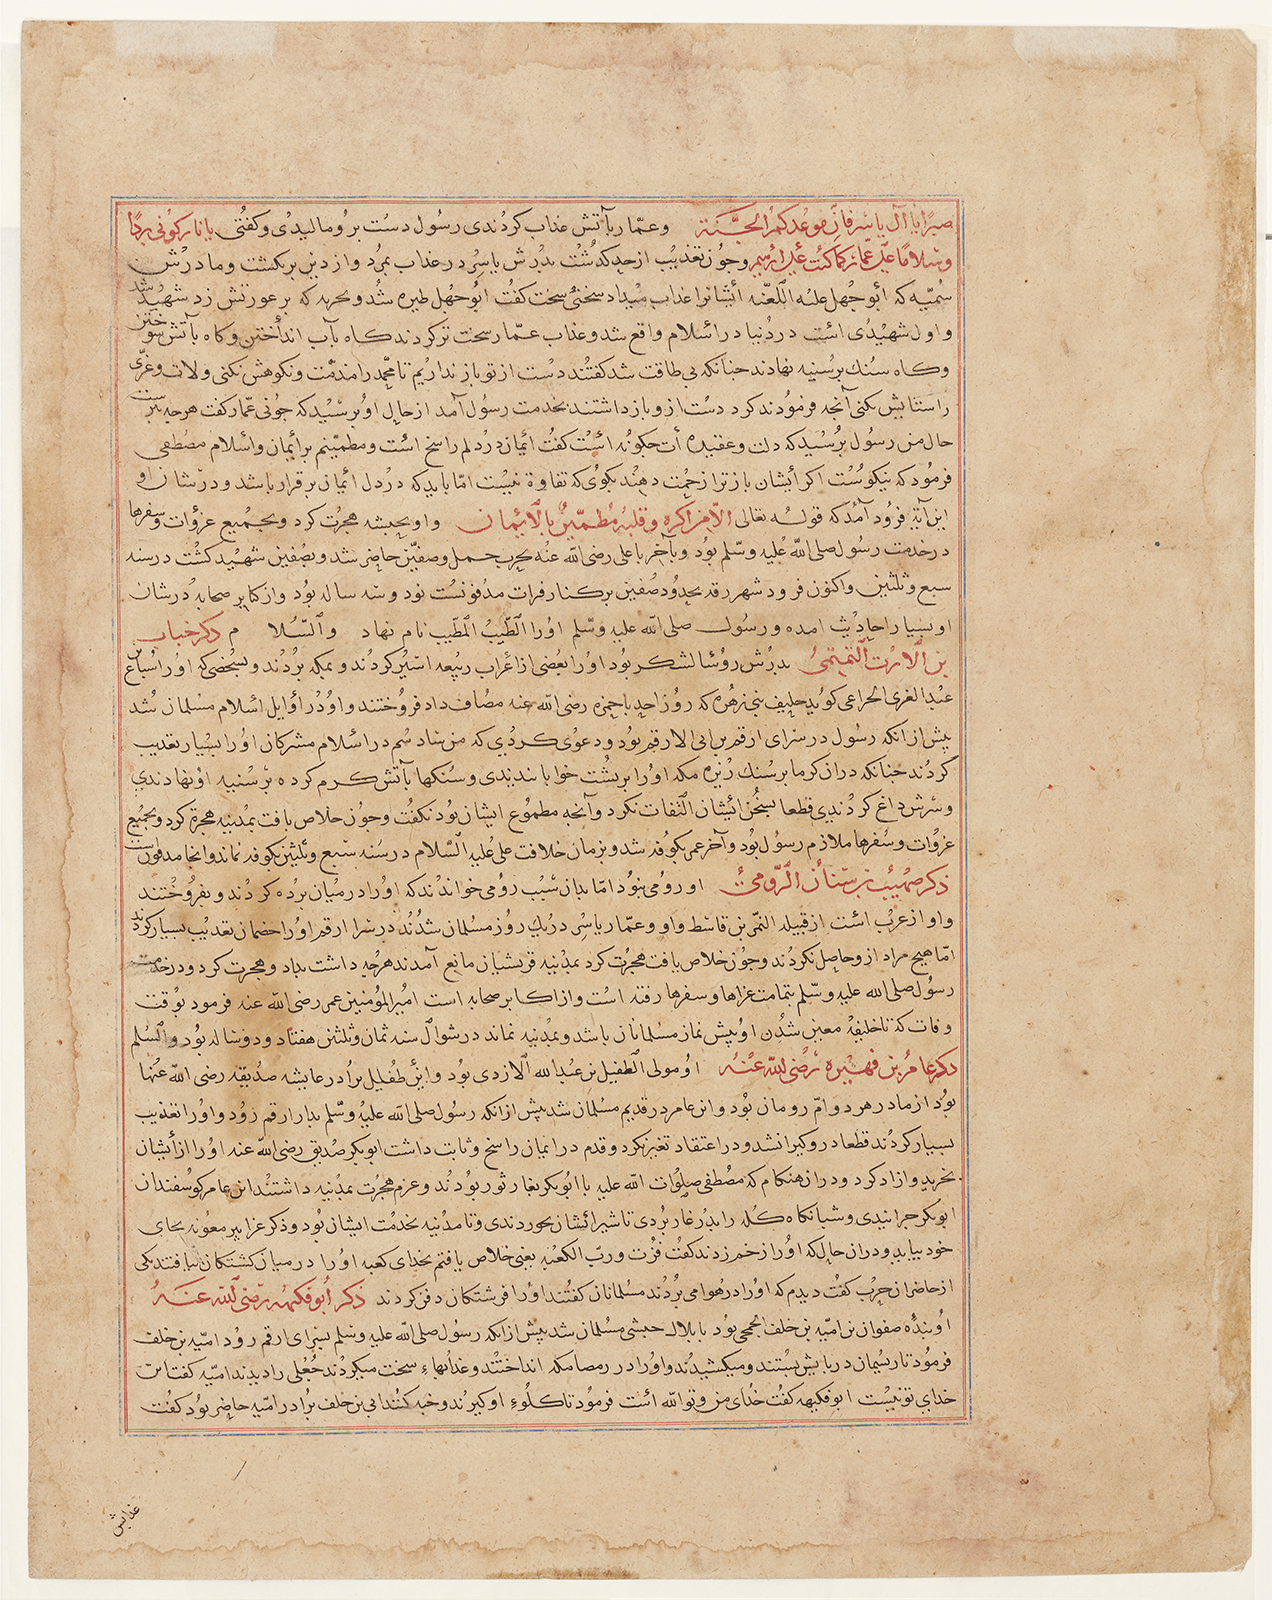 صبرًا یا آل یاسر فانّ موعدکم الجنّة وعمّار بآتش عذاب کردندی رسول دست برو مالیدی وکفتی یا نار کونی بردًا
وسلامًا علی عمّار کما کنت علی ابرهیم وچون تعذیب از حد کذشت بدرش یاسر در عذاب بمرد واز دین برنکشت ومادرش
سمیّه که ابو جهل علیه اللعنه ایشانرا عذاب میداد سخنی سخت کفت ابو جهل طیره شد وبحربه که بر عورتش زد شهید شد
واول شهیدی است در دنیا در اسلام واقع شد وعذاب عمّار سخت تر کردند کاه بآب انداختن وکاه بآتش سوختن
وکاه سنك بر سینه نهادند چنانکه بی طاقت شد کفتند دست از تو باز نداریم تا محمد را مذمّت ونکوهش نکنی ولات وعزّی
را ستایش نکنی آنچه فرمودند کرد دست ازو باز داشتند بخدمت رسول آمد از حال او برسید که چونی عمّار کفت هرچه بترست
حال من رسول برسید که دلت وعقیده ات چکونه است کفت ایمان در دلم راسخ است ومطمئنم بر ایمان واسلام مصطفی
فرمود که نیکوست اکر ایشان باز ترا زحمت دهند بکوی که تفاوت نیست امّا باید که در دل ایمان بر قرار باشد ودر شان او
این آیة فرود آمد که قوله تعالی الّا من اکره وقلبه مطمئنّ بالایمان واو بحبشه هجرت کرد وبجمیع غزوات وسفرها
در خدمت رسول صلی الله علیه وسلم بود وبآخر با علی رضی الله عنه بحرب جمل وصفین حاضر شد وبصفین شهید کشت در سنه
سبع وثلثین واکنون فرود شهر رقه بحدود صفین بر کنار فرات مدفونست نود وسه ساله بود واز کبار صحابه در شان
او بسیار احادیث آمده ورسول صلی الله علیه وسلم اورا الطیب المطیب نام نهاد والسلام م ذکر خباب
بن الارت التمیمی بدرش رؤسا لشکر بود اورا بعضی از اعراب ربیعه اسیر کردند وبمکه بردند وبشخصی که اورا سباع
عبد العزی الخزاعی کویند حلیف بنی زهره که روز احد با حمزه رضی الله عنه مصاف داد فروختند واو در اوایل اسلام مسلمان شد
بیش از انکه رسول در سرای ارقم بن ابی الارقم بود ودعوی کردی که من سادسم در اسلام مشرکان اورا بسیار تعذیب
کردند چنانکه در ان کرما بر سنك ریزه مکه اورا بر بشت خوابانیدندی وسنکها بآتش کرم کرده بر سینه او نهادندی
وسرش داغ کردندی قطعا بسخن ایشان التفات نکرد وآنچه مطموع ایشان بود نکفت وچون خلاص یافت بمدینه هجرة کرد وبجمیع
غزوات وسفرها ملازم رسول بود وآخر عمر بکوفه شد وبزمان خلافت علی علیه السلام در سنه سبع وثلثین بکوفه نماند وانجا مدفونست
ذکر صهیب بن سنان الرّومیّ او رومی نبود امّا بدان سبب رومی خواندند که اورا در میان برده کردند وبفروختند
واو از عرب است از قبیله النمر بن قاسط واو وعمّار یاسر در یك روز مسلمان شدند در سرا ارقم اورا خصمان تعذیب بسیار کردند
امّا هیچ مراد ازو حاصل نکردند وچون خلاص یافت هجرت کرد بمدینه قریشیان مانع آمدند هرچه داشت بداد وهجرت کرد ودر خدمت
رسول صلی الله علیه وسلم بتمامت غزاها وسفرها رفته است واز اکابر صحابه است امیر المؤمنین عمر رضی الله عنه فرمود بوقت
وفات که تا خلیفه معین شدن او بیش نماز مسلمانان باشد وبمدینه نماند در شوال سنه ثمان وثلثین هفتاد ودو ساله بود والسلم
ذکر عامر بن فهیره رضی الله عنه او مولی الطفیل بن عبد الله الازدی بود واین طفیل برادر عایشه صدیقه رضی الله عنها
بود از مادر هردو امّ رومان بود وابن عامر در قدیم مسلمان شد بیش از انکه رسول صلی الله علیه وسلم بدار ارقم رود واورا تعذیب
بسیار کردند قطعا درو کیرا نشد ودر اعتقاد تغیر نکرد وقدم در ایمان راسخ وثابت داشت ابوبکر صدیق رضی الله عنه اورا از ایشان
بخرید وازاد کرد ودر ان هنکام که مصطفی صلوات الله علیه با ابوبکر بغار ثور بودند وعزم هجرت بمدینه داشتند ابن عامر کوسفندان
ابوبکر چرانیدی وشبانکاه کله را بدر غار بردی تا شیر ایشان بخوردندی وتا مدینه بخدمت ایشان بود وذکر غزا بیر معونه بجای
خود بیاید ودر ان حال که اورا زخم زدند کفت فزت وربّ الکعبه یعنی خلاص یافتم بخدای کعبه اورا در میان کشتکان نیافتند یکی
از حاضران حرب کفت دیدم که اورا در هوا می بردند مسلمانان کفتند اورا فرشتکان دفن کردند ذکر ابو فکیهه رضی الله عنه
او بنده صفوان بن امیه بن خلف الجمحی بود با بلال حبشی مسلمان شد بیش از انکه رسول صلی الله علیه وسلم بسرای ارقم رود امیّه بن خلف
فرمود تا ریسمان در بایش بستند ومیکشیدند واورا در رمضا مکه انداختند وعذابهاء سخت میکردند جُعَلی را دیدند امیّه کفت این
خدای تو نیست ابو فکیهه کفت خدای من وتو الله است فرمود تا کلوء او کیرند وخبه کنند ابی بن خلف برادر امیّه حاضر بود کفت
عذابش